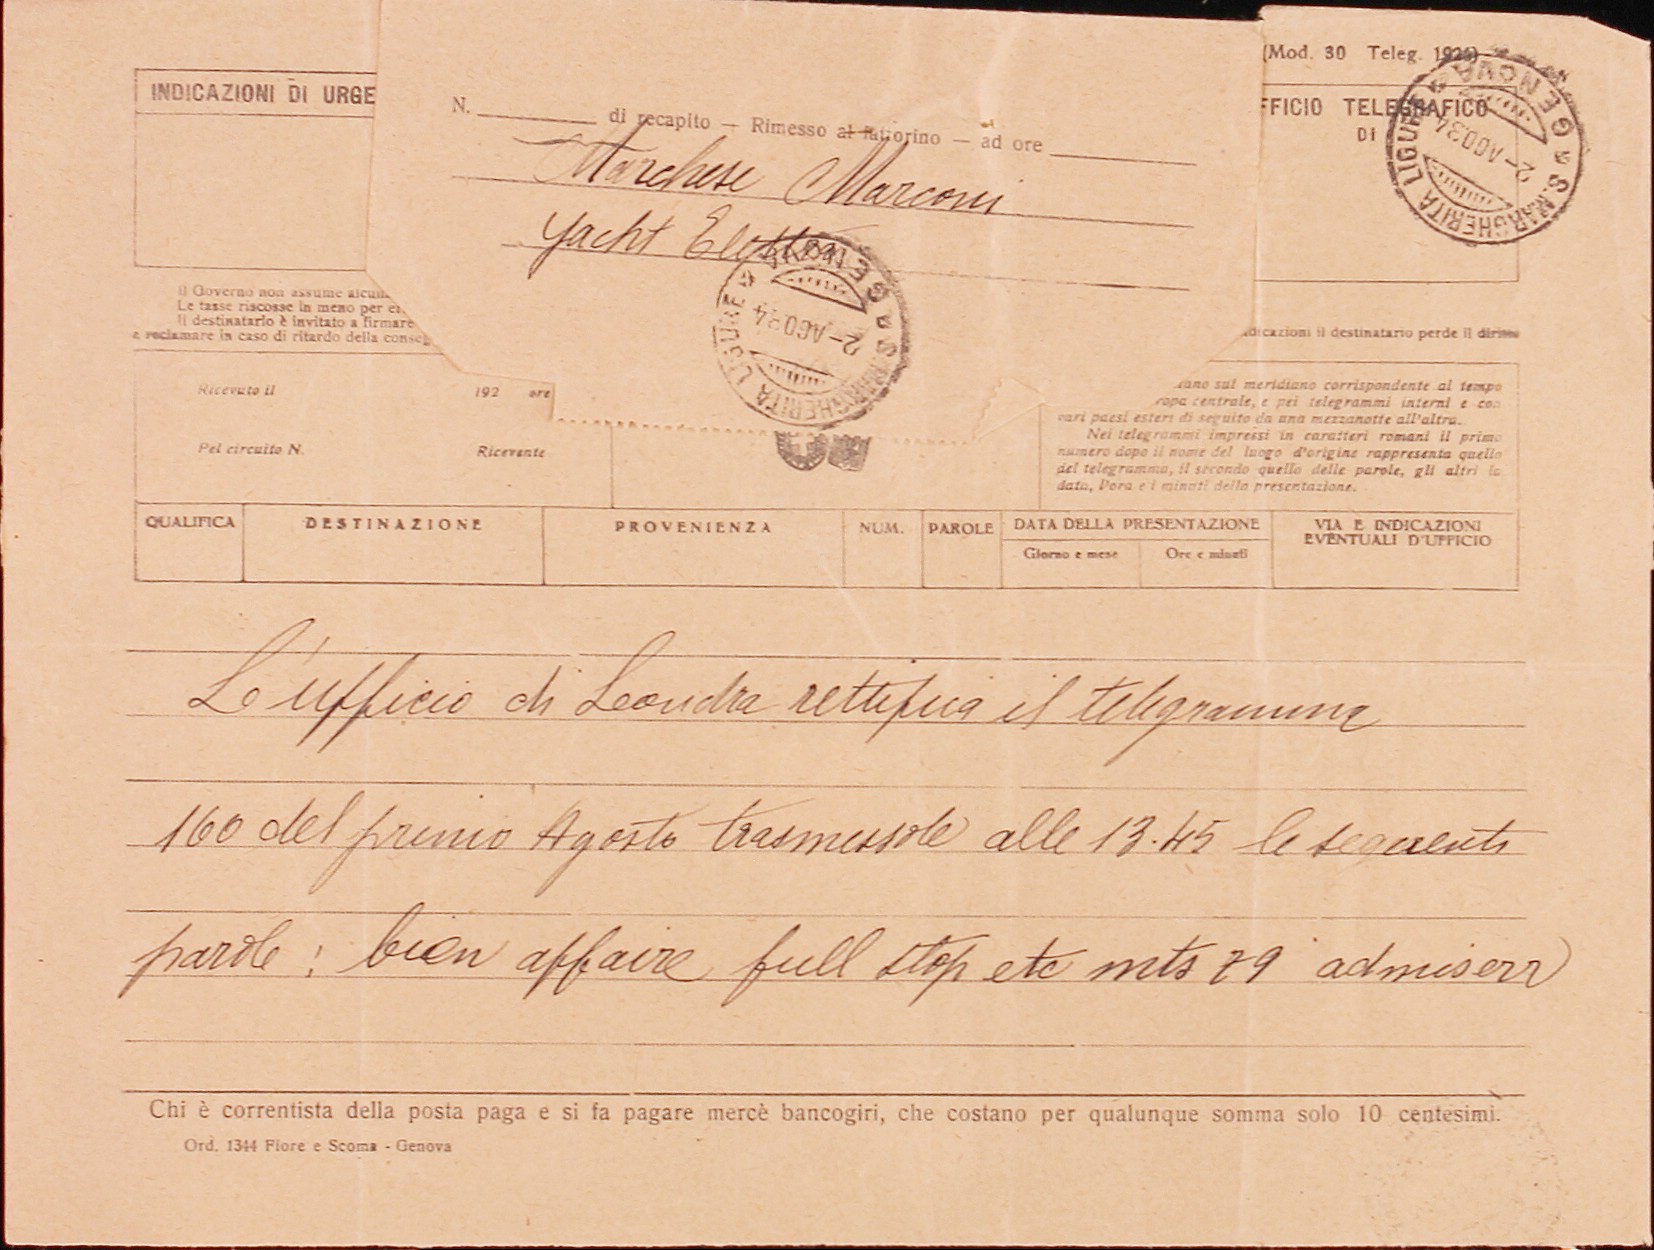 (Mod. 30 Teleg. 1926)
INDICAZIONI DI URGE
FFICIO TELEGRAFICO
DI
N. di recapito — Rimesso al fattorino — ad ore
Marchese Marconi
Yacht Elettra
S. MARGHERITA LIGURE GENOVA
2-AGO34
S. MARGHERITA LIGURE
2-AGO34
Il Governo non assume alcun
Le tasse riscosse in meno per er
Il destinatario è invitato a firmare
e reclamare in caso di ritardo della conseg
dicazioni il destinatario perde il diritto
Ricevuto il 192 ore
Pel circuito N. Ricevente
ano sul meridiano corrispondente al tempo
ropa centrale, e pei telegrammi interni e con
vari paesi esteri di seguito da una mezzanotte all'altra.
Nei telegrammi impressi in caratteri romani il primo
numero dopo il nome del luogo d'origine rappresenta quello
del telegramma, il secondo quello delle parole, gli altri la
data, l'ora e i minuti della presentazione.
QUALIFICA DESTINAZIONE PROVENIENZA NUM. PAROLE DATA DELLA PRESENTAZIONE VIA E INDICAZIONI
EVENTUALI D'UFFICIO
Giorno e mese Ore e minuti
L'ufficio di Londra rettifica il telegramma
160 del primo Agosto trasmessole alle 13.45 le seguenti
parole : bien affaire full stop etc mts 79 admiserr
Chi è correntista della posta paga e si fa pagare mercè bancogiri, che costano per qualunque somma solo 10 centesimi.
Ord. 1344 Fiore e Scoma - Genova